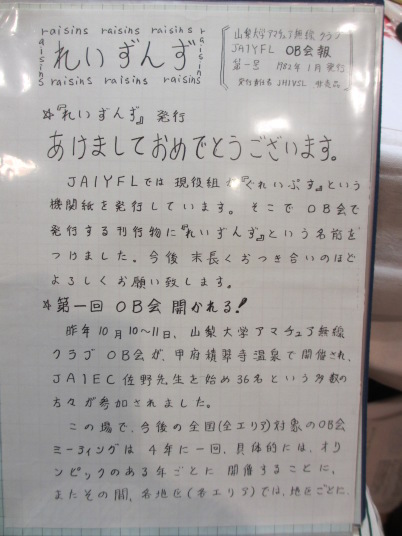 raisins raisins raisins
raisins
れいずんず
raisins
raisins raisins raisins
山梨大学アマチュア無線クラブ
JA1YFL OB会報
第一号 1982年1月発行
☆『れいずんず』発行
あけましておめでとうございます。
JA1YFLでは現役組が『ぐれいぷす』という
機関紙を発行しています。そこでOB会で
発行する刊行物に『れいずんず』という名前を
つけました。今後末長くおつき合いのほど
よろしくお願い致します。
☆第一回OB会開かれる!
昨年10月10~11日、山梨大学アマチュア無線
クラブOB会が、甲府積翠寺温泉で開催され、
JA1EC佐野先生を始め36名という多数の
方々が参加されました。
この場で、今後の全国(全エリア)対象のOB会
ミーティングは4年に一回、具体的には、オリ
ンピックのある年ごとに開催することに、
またその間、各地区(各エリア)では、地区ごとに、